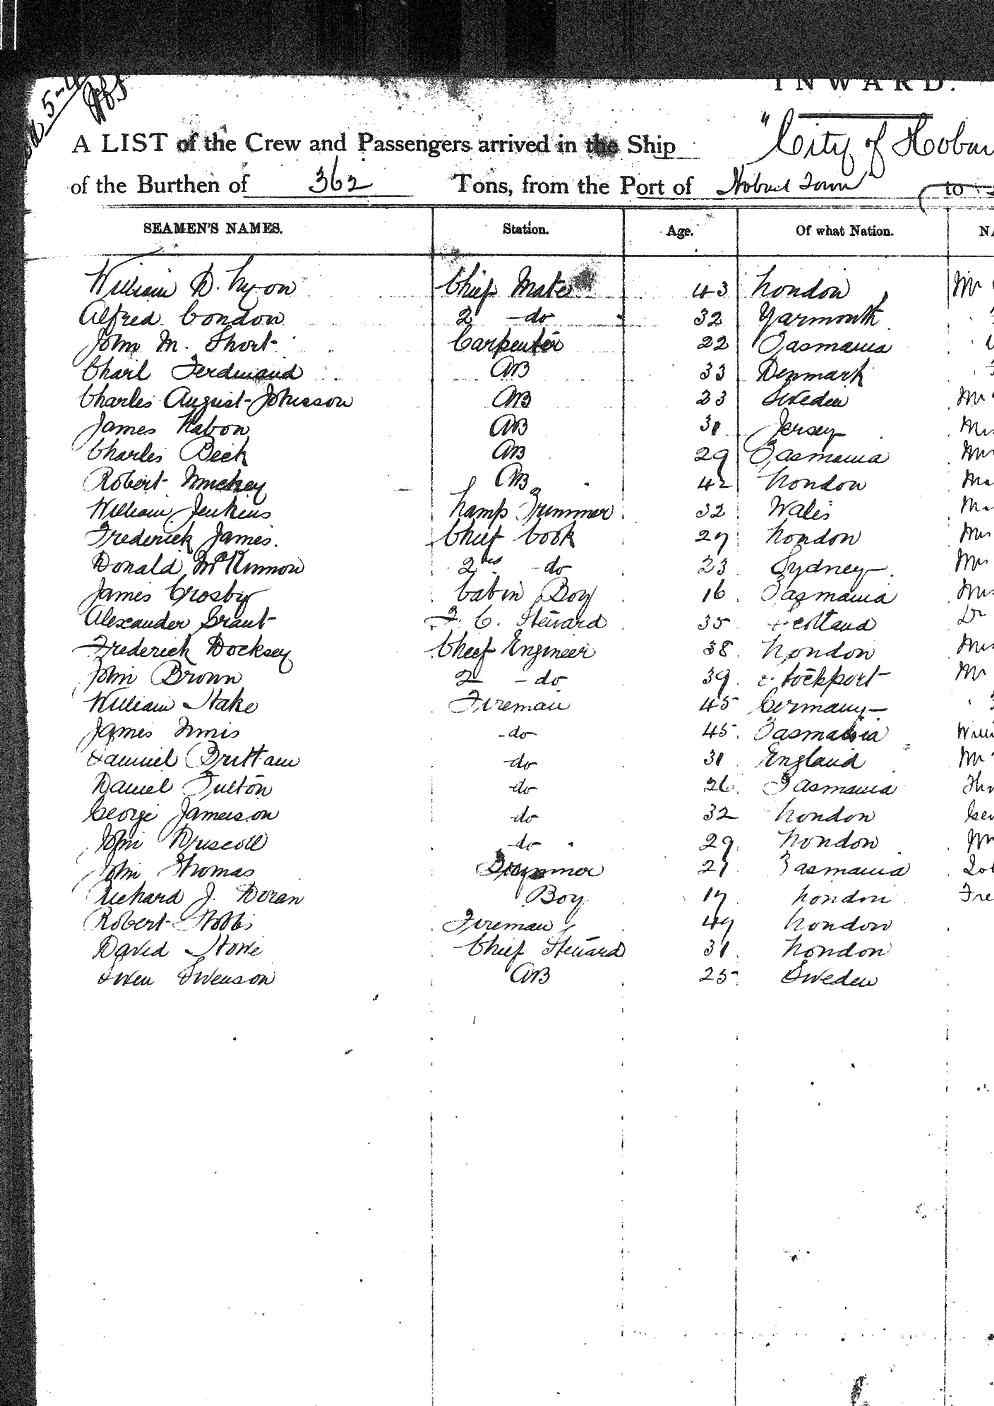 INWARD.
A LIST of the Crew and Passengers arrived in the Ship "City of Hobar
of the Burthen of 362 Tons, from the Port of Hobart Town to
SEAMEN'S NAMES. Station. Age. Of what Nation. NA
William D. Lyon Chief Mate 43 London Mr
Alfred Condon 2 -do 32 Yarmouth
John M. Short Carpenter 22 Tasmania
Charl Ferdinand AB 33 Denmark
Charles August Johnsson AB 23 Sweden Mr
James Rabon AB 31 Jersey
Charles Beck AB 29 Tasmania
Robert AB 42 London
William Jenkins Lamp Trimmer 32 Wales
Frederick James. Chief Cook 29 London
Donald McKinnon 2nd do 23 Sydney
James Crosby Cabin Boy 16 Tasmania
Alexander Grant F. C. Steward 35 Scotland Dr
Frederick Docksey Chief Engineer 38 London
John Brown 2 -do 39 Stockport Mr
William Hake Fireman 45 Germany
James Innis -do 45 Tasmania
Samuel Brittain -do 31 England
Daniel Fulton -do 26 Tasmania
George Jameson -do 32 London
John Driscoll -do 29 London
John Thomas Trimmer 21 Tasmania
Richard J. Doran Boy 17 London Fre
Robert Hobbs Fireman 49 London
David Howe Chief Steward 31 London
Swen Swenson AB 25 Sweden